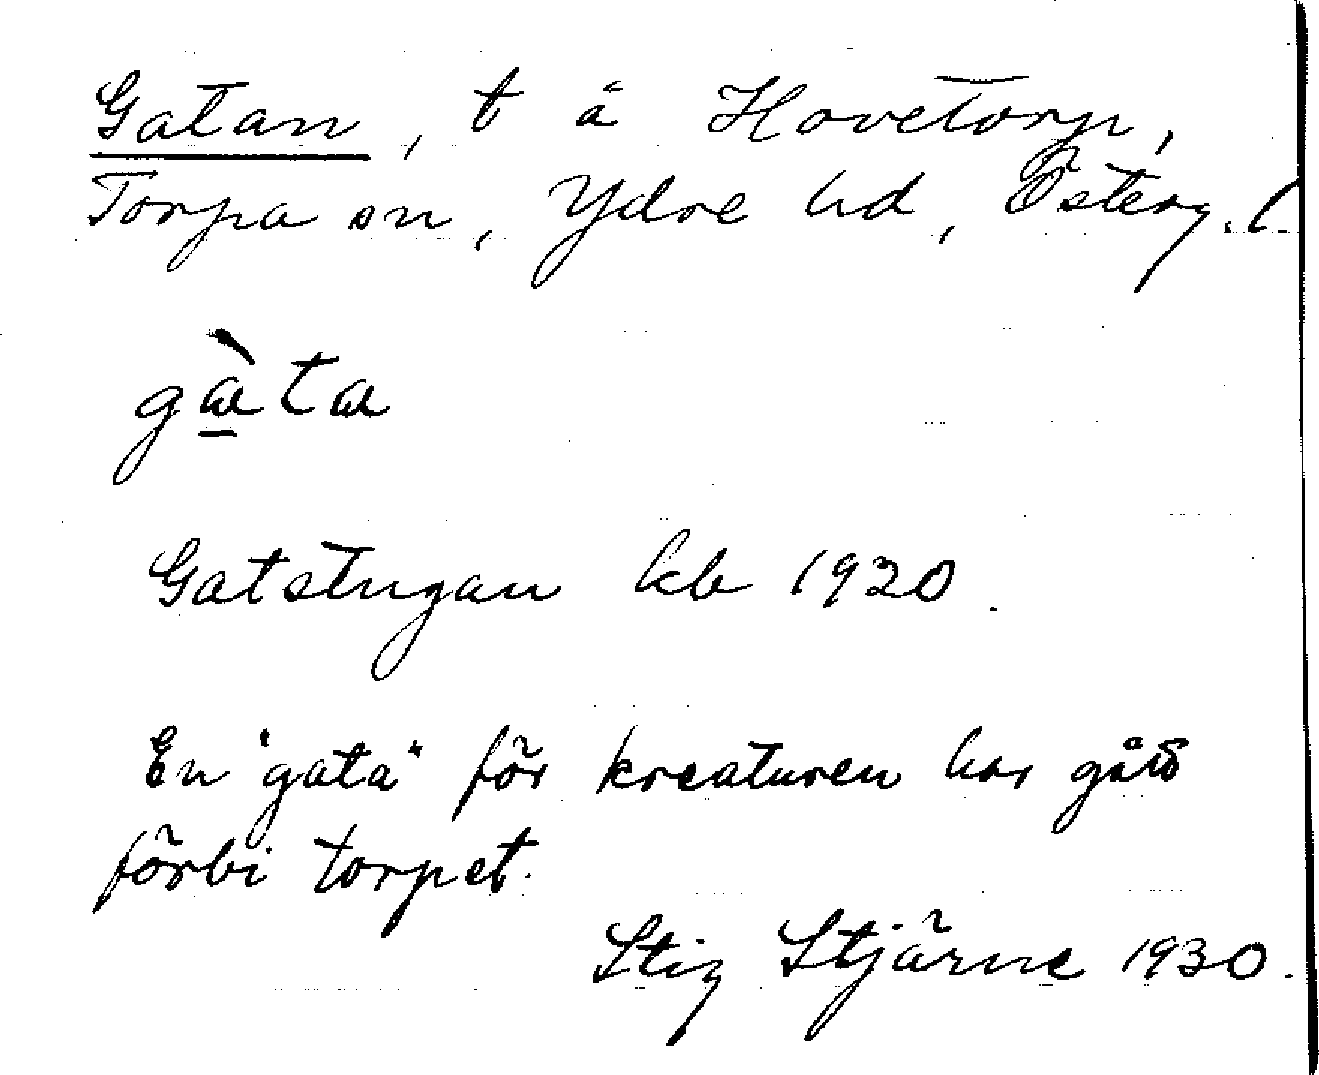 Gatan, t å Hovetorp,
Torpa sn, Ydre hd, Österg. l
gàta
Gatstugan kb 1920.
En "gata" för kreaturen har gått
förbi torpet.
Stig Stjärne 1930.